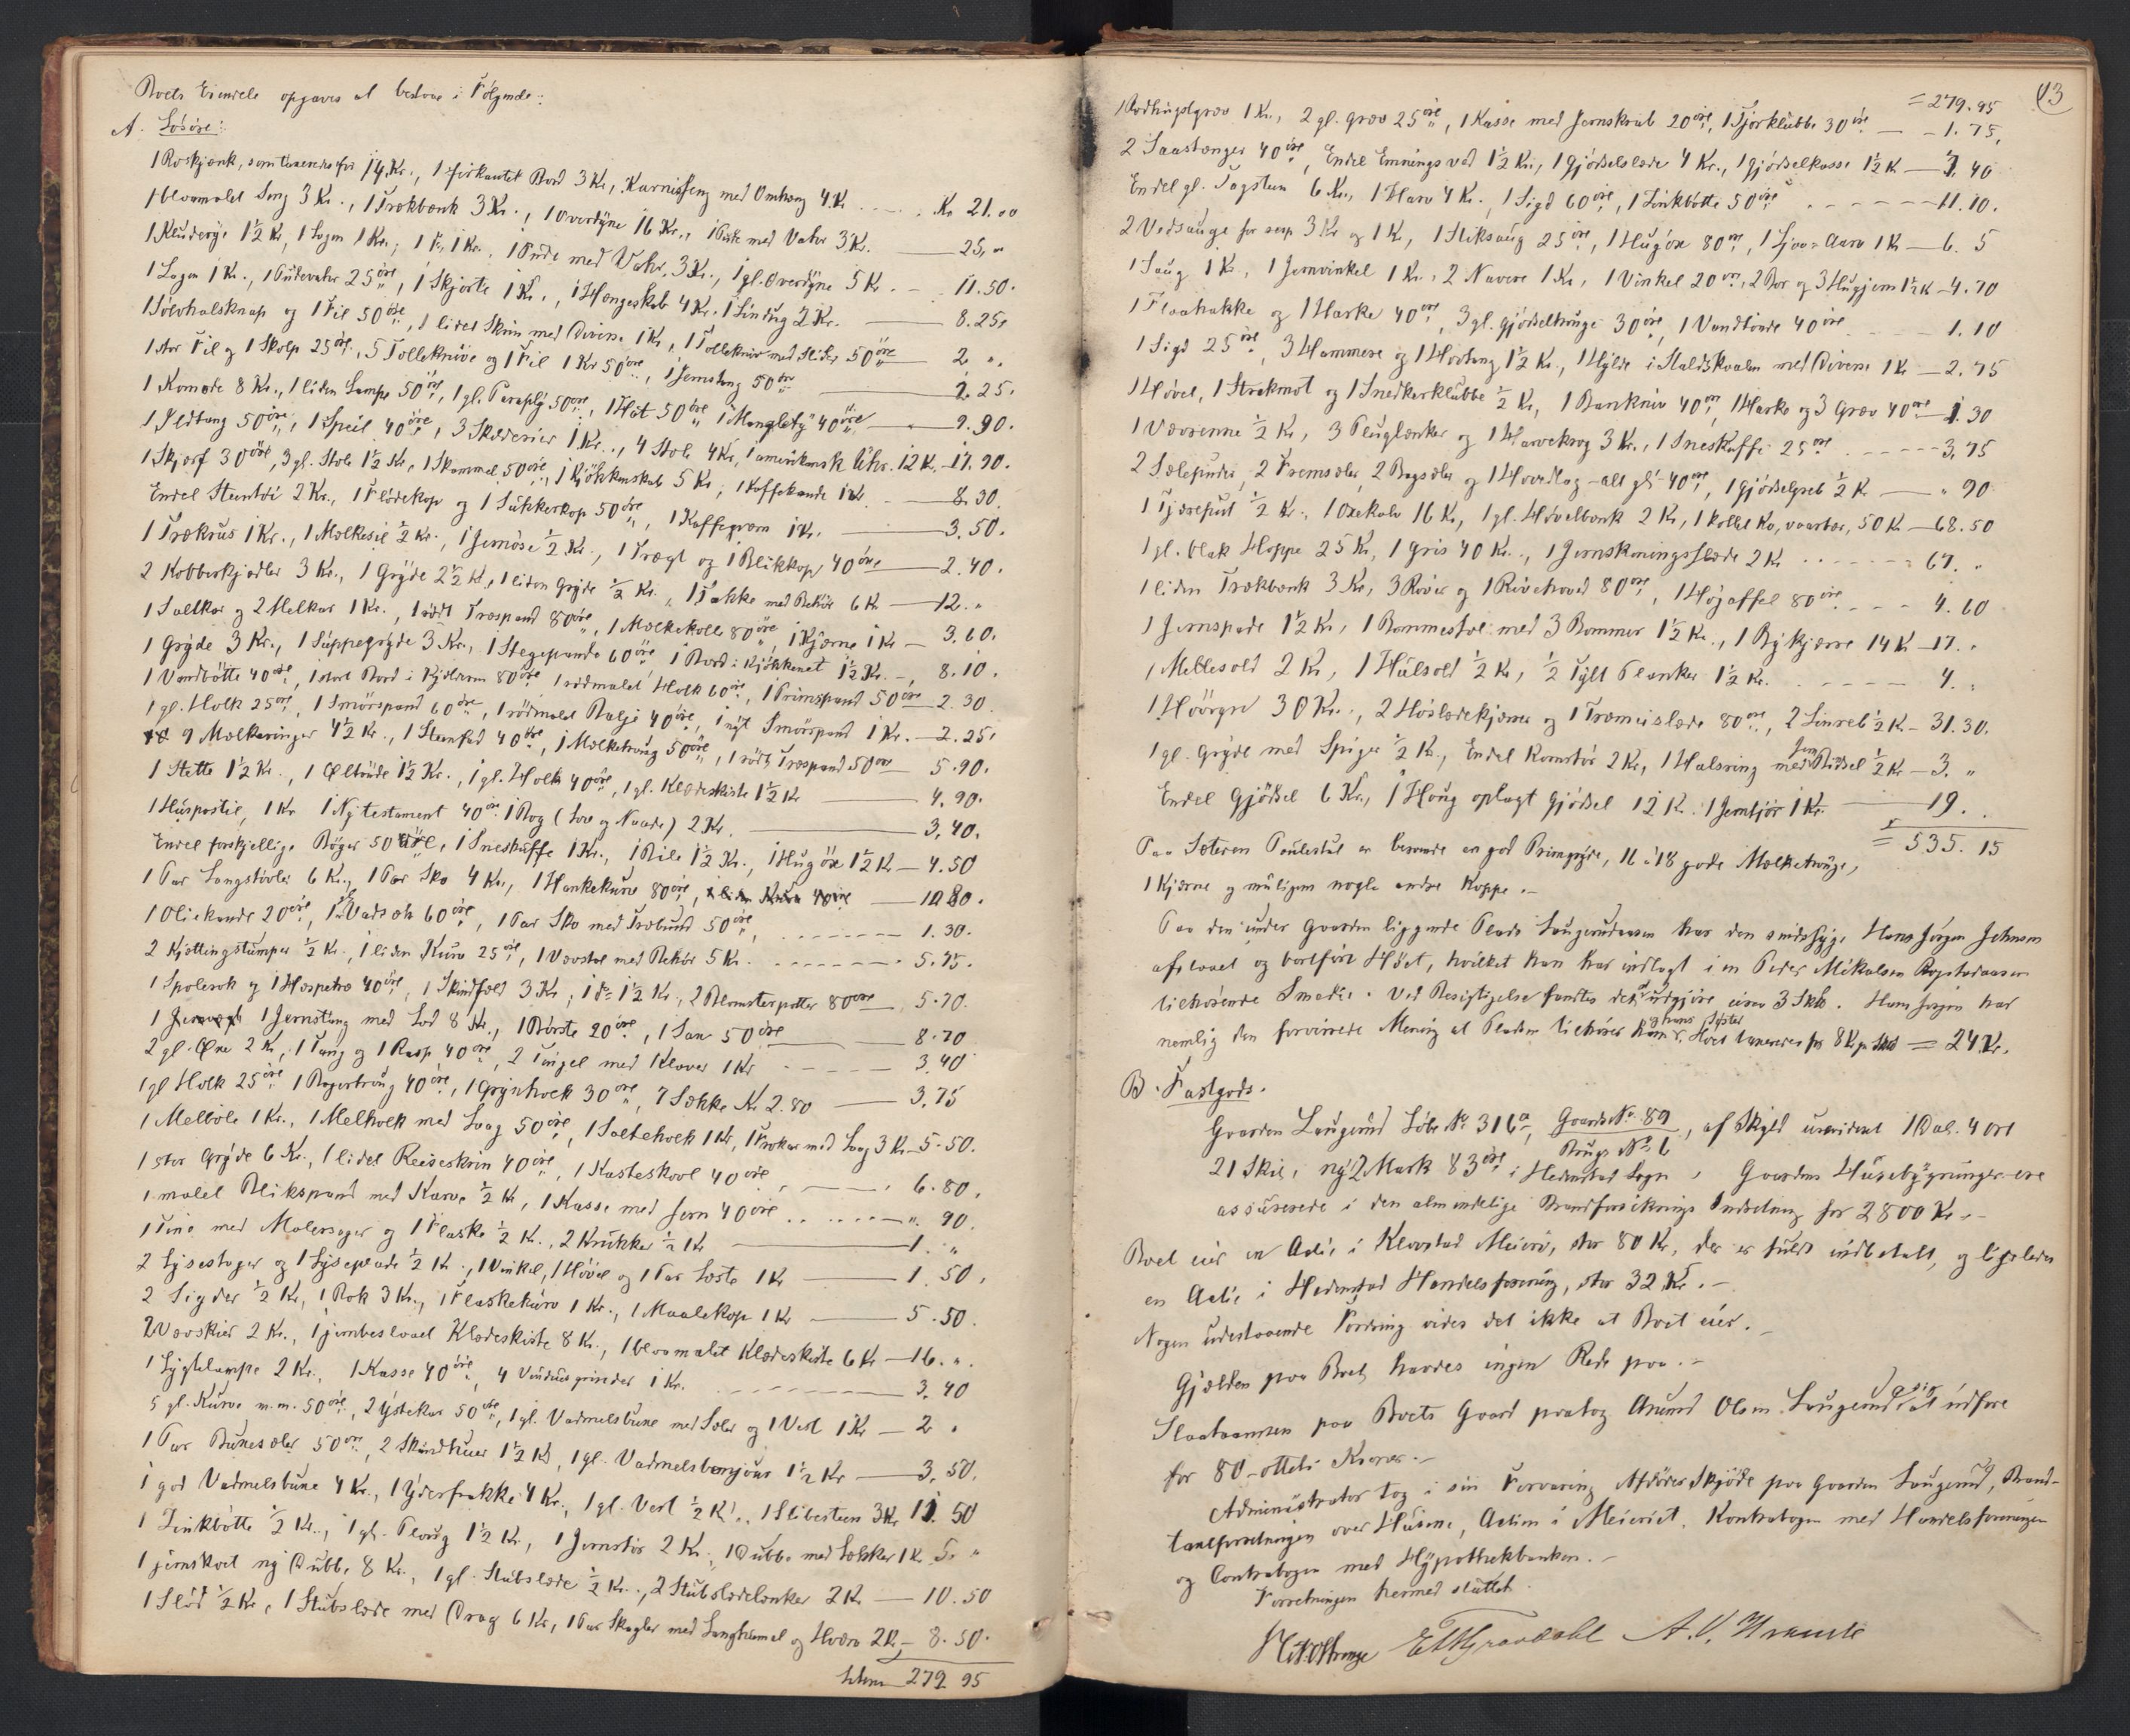 Boets Eiendele opgaves at bestaae i Følgende:
A. Løsøre:
1 Roskjænk, som taxeredes for 14 Kr., 1 firkantet Bord 3 Kr, Karnisseng med Omhæng 4 K. Kr 21.00
1 blaamalet Seng 3 Kr., 1 Trækbænk 3 Kr., 1 Overdyne 16 Kr., 1 Pude med Vahr 3 Kr. 25,"
1 Kluderye 1½ Kr, 1 Lagen 1 Kr., 1 do 1 Kr., 1 Pude med Vahr. 3 Kr., 1 gl. Overdyne 5 Kr. 11.50.
1 Lagen 1 Kr., 1 Pudevahr 25 öre, 1 Skjorte 1 Kr., 1 Hængeskab 4 Kr., 1 Lindug 2 Kr. 8.25,
1 Sølvhalsknap og 1 Fil 50 öre, 1 lidet Skrin med Divers 1 Kr, 1 Tollekniv med Slire 50 öre 2 ".
1 stor Fil og 1 Skolp 25 öre, 5 Tolleknive og 1 Fil 1 Kr 50 öre, 1 Jernstang 50 öre 2.25.
1 Komode 8 Kr., 1 liden Lampe 50 öre, 1 gl. Paraply 50 öre, 1 Hat 50 öre, 1 Mangletøj 40 öre 9.90.
1 Ildtang 50 öre, 1 Speil 40 öre, 3 Skilderier 1 Kr., 4 Stole 4 Kr, 1 amerikansk Uhr. 12 K. 17.90.
1 Skjærf 30 öre, 3 gl. Stole 1½ Kr, 1 Skammel 50 öre, 1 Kjøkkenskab 5 Kr, 1 Kaffekande 1 Kr 8.30.
Endel Steentöi 2 Kr., 1 Flødekop og 1 Sukkerkop 50 öre, 1 Kaffeqværn 1 Kr. 3.50.
1 Trækrus 1 Kr., 1 Melkesil ½ Kr., 1 Jernöse ½ Kr., 1 Trægt og 1 Blikkop 40 öre 2.40.
2 Kobberkjedler 3 Kr., 1 Gryde 2½ Kr, 1 liden Gryde ½ Kr., 1 Takke med Rekør 6 Kr 12."
1 Saltkar og 2 Melkar 1 Kr., 1 rødt Træspand 80 öre, 1 Melkekolle 80 öre, 1 Kjærne 1 Kr 3.60.
1 Gryde 3 Kr., 1 Suppegryde 3 Kr., 1 Stegepande 60 öre, 1 Bord i Kjøkkenet 1½ Kr. 8.10.
1 Vandbøtte 40 öre, 1 stort Bord i Kjelderen 80 öre, 1 rødmalet Holk 60 öre, 1 Primspand 50 öre 2.30.
1 gl. Holk 25 öre, 1 Smørspand 60 öre, 1 rødmalet Balje 40 öre, 1 nyt Smørspand 1 Kr. 2.25.
9 Melkeringer 4½ Kr., 1 Steenfad 40 öre, 1 Melketraug 50 öre, 1 rødt Træspand 50 öre 5.90.
1 Stette 1½ Kr., 1 Øltønde 1½ Kr., 1 gl. Holk 40 öre, 1 gl. Klædeskiste 1½ Kr 4.90.
1 Huspostil, 1 Kr 1 Nytestament 40 öre 1 Bog (Lov og Naade) 2 Kr. 3,40.
Endel forskjellige Bøger 50 öre, 1 Sneskuffe 1 Kr., 1 Bile 1½ Kr., 1 Hugöx 1½ K 4.50
1 Par Langstövler 6 Kr., 1 Par Sko 4 Kr., 1 Hankekurv 80 öre, 10.80.
1 Oliekande 20 öre, 1 Vadsæk 60 öre, 1 Par Sko med Træbund 50 öre, 1.30.
2 Kjættingstumper ½ Kr., 1 liden Kurv 25 öre, 1 Vævstol med Rekør 5 Kr. 5.75.
1 Spolerok og 1 Hespetræ 40 öre, 1 Skindfæld 3 Kr, 1 do 1½ Kr., 2 Blomsterpotter 80 öre 5.70.
1 Jernstang med Lod 8 Kr., 1 Børste 20 öre, 1 Sax 50 öre 8.70
2 gl. Øxe 2 Kr, 1 Tang og 1 Rasp 40 öre, 2 Tøngel med Klaver 1 Kr 3.40
1 gl Holk 25 öre, 1 Bagertraug 40 öre, 1 Grynholk 30 öre, 7 Sække Kr 2.80 3,75
1 Melbøle 1 Kr., 1 Melholk med Laag 50 öre, 1 Salteholk 1 Kr, 1 Trækar med Laag 3 Kr 5.50.
1 stor Gryde 6 Kr., 1 lidet Reiseskrin 40 öre, 1 Kasteskovl 40 öre, 6.80,
1 malet Blikspand med Karve ½ Kr, 1 Kasse med Jern 40 öre ". 90.
1 Tine med Malersager og 1 Flaske ½ Kr., 2 Krukker ½ Kr 1. "
2 Lysestager og 1 Lyseplade ½ Kr., 1 Vinkel, 1 Høvel og 1 Par Læste 1 Kr 1.50,
2 Sigder ½ Kr, 1 Rok 3 Kr., 1 Flaskekurv 1 Kr., 1 Maalekop 1 Kr 5.50.
2 Vævskier 2 Kr., 1 jernbeslaaet Klædeskiste 8 Kr., 1 blaamalet Klædeskiste 6 Kr 16.".
1 Lygtelampe 2 Kr., 1 Kasse 40 öre, 4 Vinduesgrinder 1 Kr. 3.40
5 gl. Kurve m.m. 50 öre, 2 Ystekar 50 öre, 1 gl. Vadmelsbuxe med Seler og 1 Vest 1 Kr 2 "
1 Par Buxeseler 50 öre, 2 Skindhuer 1½ Kr, 1 gl. Vadmels 1½ Kr 3,50,
1 god Vadmelsbuxe 4 Kr., 1 Yderfrakke 4 Kr., 1 gl. Vest ½ Kr., 1 Slibesteen 3 Kr 11.50
1 Zinkbøtte ½ Kr., 1 gl. Ploug 1½ Kr., 1 Jernstør 2 Kr., 1 Dubbe med Lænker 1 K. 5."
1 jernskoet ny Dubbe 8 Kr., 1 gl. Stubslæde ½ Kr., 2 Stubslædelænker 2 K 10.50
1 Slød ½ Kr, 1 Stubslæde med Drag 6 Kr, 1 Par Skagler med Langhammel og Hvære 2 K 8.50.
279 95
13
= 279.95
1 Rodhugstgræv 1 Kr., 2 gl. græv 25 öre, 1 Kasse med Jernskrab 20 öre, 1 Tjorklubbe 30 öre 1.75,
2 Saastænger 40 öre, Endel Emningsved 1½ Kr., 1 gjødselslæde 4 Kr., 1 gjødselkasse 1½ K 7.40
Endel gl. Tagsteen 6 Kr., 1 Harv 4 Kr., 1 Sigd 60 öre, 1 Zinkbøtte 50 öre 11.10.
2 Vedsauge for resp 3 Kr og 1 K, 1 Stiksaug 25 öre, 1 Hugöxe 80 öre, 1 Ljaa = Aarv 1 K 6. 5
1 Saug 1 Kr, 1 Jernvinkel 1 Kr., 2 Navere 1 Kr, 1 Vinkel 20 öre, 2 Bor og 3 Hugjern 1½ K 4.70
1 Flaahakke og 1 Harke 40 öre, 3 gl. gjødseltruge 30 öre, 1 Vandtønde 40 öre 1.10
1 Sigd 25 öre, 3 Hammere og 1 Hovtang 1½ Kr., 1 Hylde i Staldskvalen med Diverse 1 K 2.75
1 Høvel, 1 Strekmot og 1 Snedkerklubbe ½ Kr, 1 Bankniv 40 öre, 1 Harke og 3 Græv 40 öre 1.30
1 Værrenne ½ Kr, 3 Pluglænker og 1 Harvekrog 3 Kr., 1 Sneskuffe 25 öre 3,75
2 Sælepuder, 2 Fremsæler, 2 Bagsæler og 1 Hovedlag - alt gl. 40 öre, 1 gjødselgreb ½ K " 90
1 Tjærefust ½ Kr., 1 Oxekalv 16 Kr, 1 gl. Høvelbænk 2 Kr, 1 kollet Ko, vaarbær, 50 K 68.50
1 gl. blak Hoppe 25 Kr, 1 Gris 40 Kr., 1 Jernskoningsslæde 2 K 67."
1 liden Trækbænk 3 Kr, 3 River og 1 Rivehoved 80 öre, 1 Høgaffel 80 öre 4.60
1 Jernspade 1½ Kr, 1 Bommestol med 3 Bommer 1½ Kr., 1 Bykjærre 14 K 17."
1 Mellesold 2 Kr, 1 Hulsold ½ Kr, ½ Tylt Planker 1½ Kr. 4."
1 Høvogn 30 Kr., 2 Høslædekjæmer og 1 Træmeislæde 80 öre, 2 Linreb ½ K 31.30.
1 gl. Gryde med Spiger ½ Kr., Endel Kornstør 2 Kr, 1 Halsring med Jern Bidsel ½ Kr 3. "
Endel gjødsel 6 Kr., 1 Haug oplagt gjødsel 12 K. 1 Jerntjor 1 Kr. 19.
= 535. 15
Paa Sæteren Poulestul er beroende en god Primgryde, 16 à 18 gode Melketruge,
1 Kjærne og muligens nogle andre Koppe.
Paa den under Gaarden liggende Plads Laugerudaasen har den sindssyge Hans Jørgen Johnsen
afslaaet og bortført Høet, hvilket han har indlagt i en Peder Mikalsen Bogstadaasen
tilhørende Smedie. Ved Besigtigelse fandtes det at udgjøre circa 3 Sk℔. Hans Jørgen har
nemlig den forvirrede Mening at Pladsen tilhører ham og hans Søster. Høet taxeredes for 8 Kr pr Sk℔ = 24 Kr.
B. Fastgods.
Gaarden Laugerud Løbe No 316a, Gaards No. 89 / Brugs No 6, af Skyld urevideret 1 Dal. 4 ort
21 Skil, ny 2 Mark 83 öre i Hedenstad Sogn. Gaardens Husebygninger ere
assurerede i den almindelige Brandforsikrings Indretning for 2800 Kr.
Boet eier en Actie i Klovstad Meieri, stor 80 Kr, der er fuldt indbetalt, og ligeledes
en Actie i Hedenstad Handelsforening, stor 32 Kr.
Nogen udestaaende Fordring vides det ikke at Boet eier.
Gjælden paa Boet havdes ingen Rede paa.
Slaataannen paa Boets Gaard paatog Amund Olsen Laugerud sig at udføre
for 80 - otteti Kroner.
Administrator tog i sin Forvaring Afdødes Skjøde paa Gaarden Laugerud, Brand-
taxtforretningen over Husene, Actien i Meieriet, Kontrabogen med Handelsforeningen
og Contrabogen med Hypothekbanken.
Forretningen hermed sluttet.